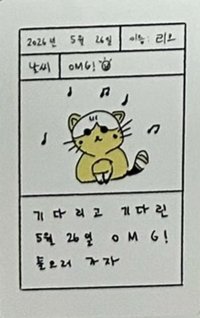 2026년 5월 26일 이름: 리오
날씨 OMG!
기다리고 기다린
5월 26일 OMG!
들으러 가자